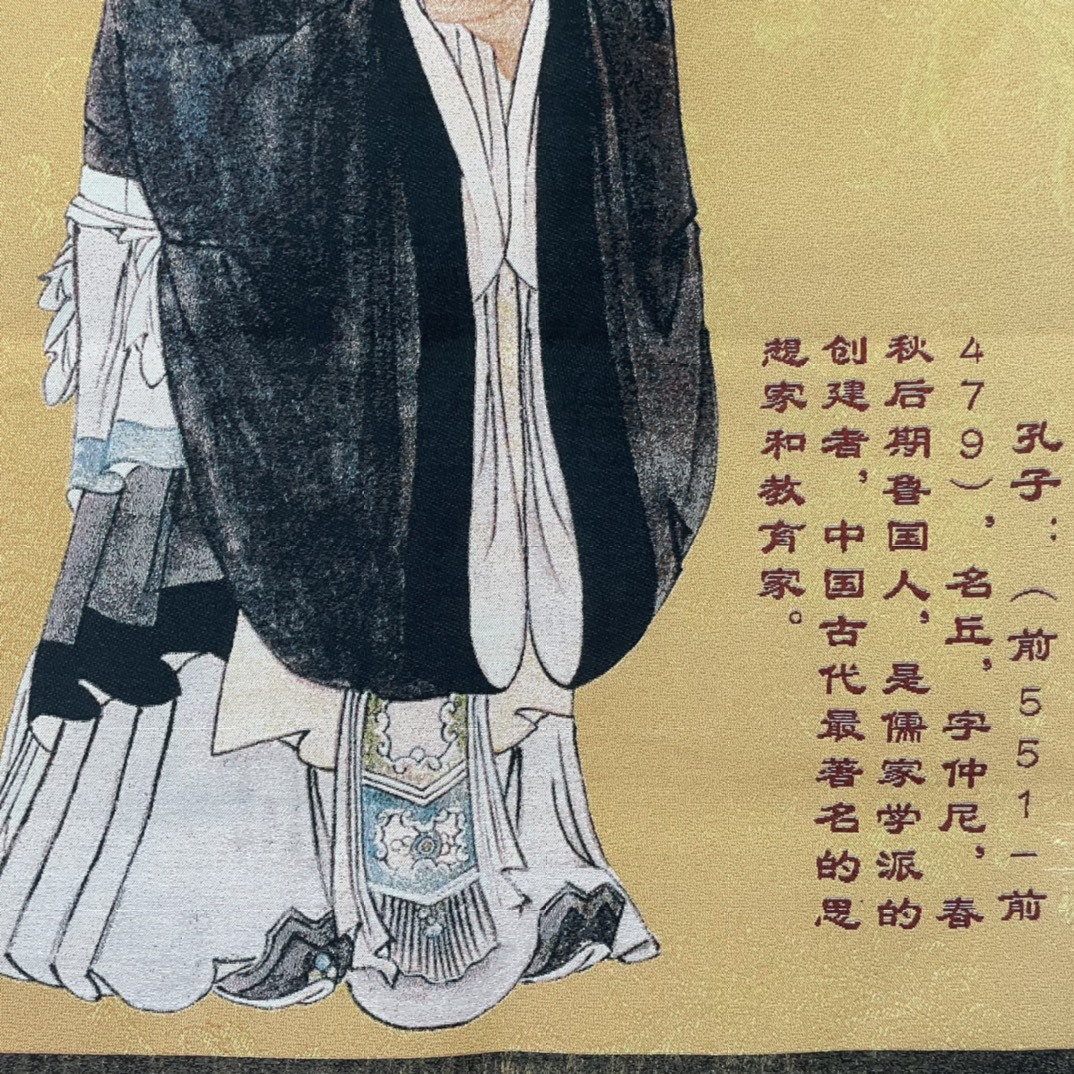 孔子：（前551一前
479），名丘，字仲尼，春
秋后期鲁国人，是儒家学派的
创建者，中国古代最著名的思
想家和教育家。